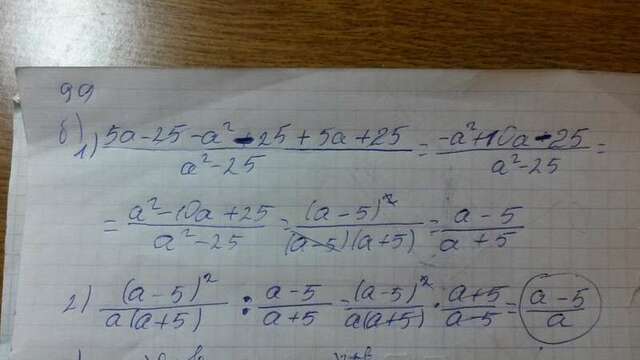 99
б)
1) (5a-25-a²-25+5a+25)/(a²-25) = (-a²+10a-25)/(a²-25) =
= (a²-10a+25)/(a²-25) = (a-5)²/((a-5)(a+5)) = (a-5)/(a+5)
2) (a-5)²/(a(a+5)) : (a-5)/(a+5) = (a-5)²/(a(a+5)) · (a+5)/(a-5) = (a-5)/a